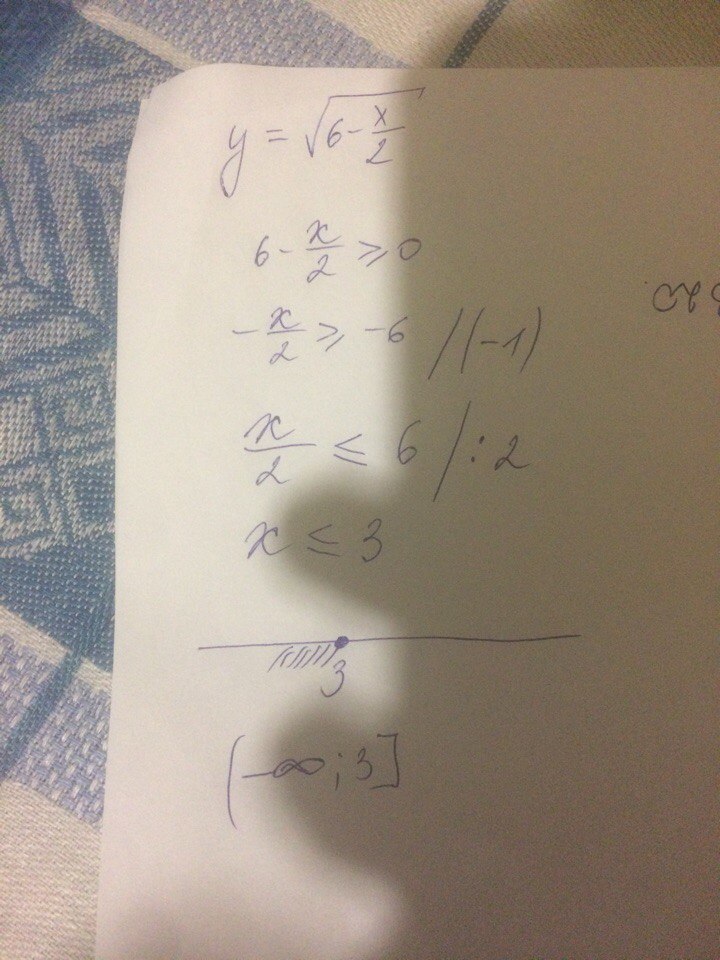 y = √(6 - x/2)
6 - x/2 ⩾ 0
- x/2 ⩾ -6 /(-1)
x/2 ≤ 6 / : 2
x ≤ 3
3
(-∞; 3]